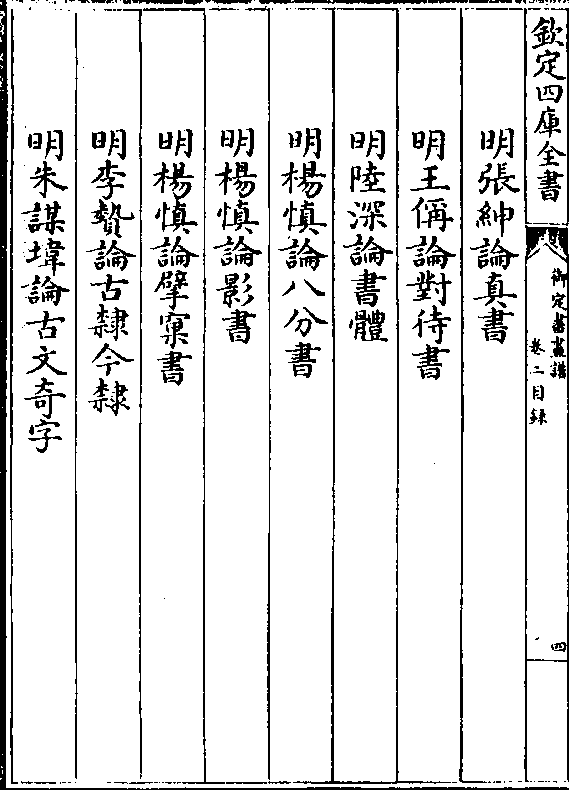 欽定四庫全書
御定書畫譜
卷二目録
四
明張紳論真書
明王偁論對待書
明陸深論書體
明楊慎論八分書
明楊慎論影書
明楊慎論擘窠書
明李贄論古隸今隸
明朱謀㙔論古文奇字